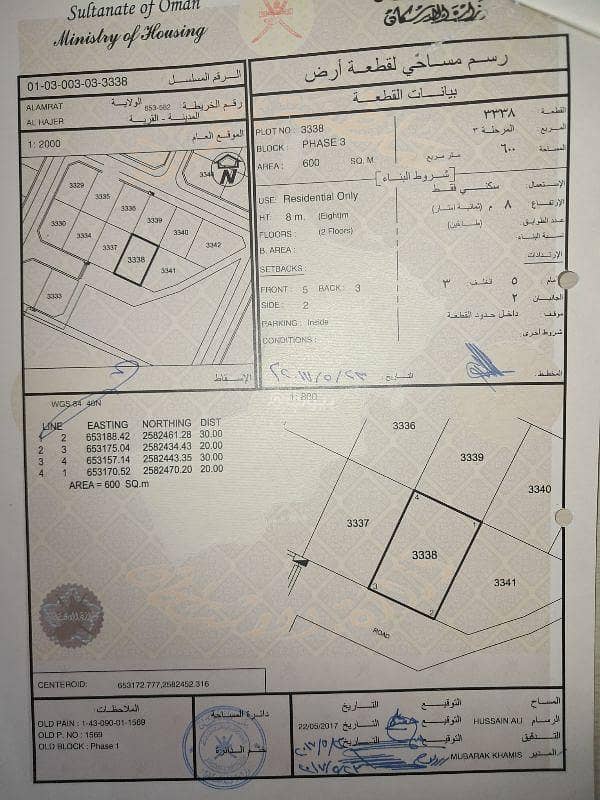 Sultanate of Oman
Ministry of Housing
01-03-003-03-3338
الـرقم المسلسل
ALAMRAT
653-582
رقم الخريطة
الولاية
AL HAJER
المدينة - القرية
1: 2000
الموقع العام
3329
3335
3336
3339
3340
3342
3330
3334
3337
3338
3341
3333
3344
N
الاسقاط
رسم مساحي لقطعة أرض
بيانات القطعة
PLOT NO : 3338
٣٣٣٨
القطعة
BLOCK : PHASE 3
المرحلة ٣
المربع
AREA : 600 SQ. M
متر مربع
٦٠٠
المساحة
شروط البناء
USE: Residential Only
سكني فقط
الإستعمال
HT 8 m. (Eight)m
٨ م (ثمانية امتار)
الإرتفاع
FLOORS : (2 Floors)
(طابقين)
عدد الطوابق
B. AREA :
نسبة البناء
SETBACKS :
الإرتدادات
FRONT : 5 BACK : 3
أمام ٥ خلف ٣
SIDE : 2
الجانبان ٢
PARKING : Inside
موقف داخل حدود القطعة
CONDITIONS :
شروط أخرى
المخطط
التاريخ
WGS 84 40N
LINE EASTING NORTHING DIST
1 2 653188.42 2582461.28 30.00
2 3 653175.04 2582434.43 20.00
3 4 653157.14 2582443.35 30.00
4 1 653170.52 2582470.20 20.00
AREA = 600 SQ.m
3336
3339
3340
3337
3338
3341
1
2
3
4
ROAD
CENTEROID: 653172.777,2582452.316
الملاحظات:
OLD PAIN : 1-43-090-01-1569
OLD P. NO : 1569
OLD BLOCK : Phase 1
دائرة المساحة
ختم الدائرة
التاريخ
التوقيع
المساح
22/05/2017
التاريخ
التوقيع
HUSSAIN ALI
الرسام
التاريخ
التوقيع
التدقيق
MUBARAK KHAMIS
المدير